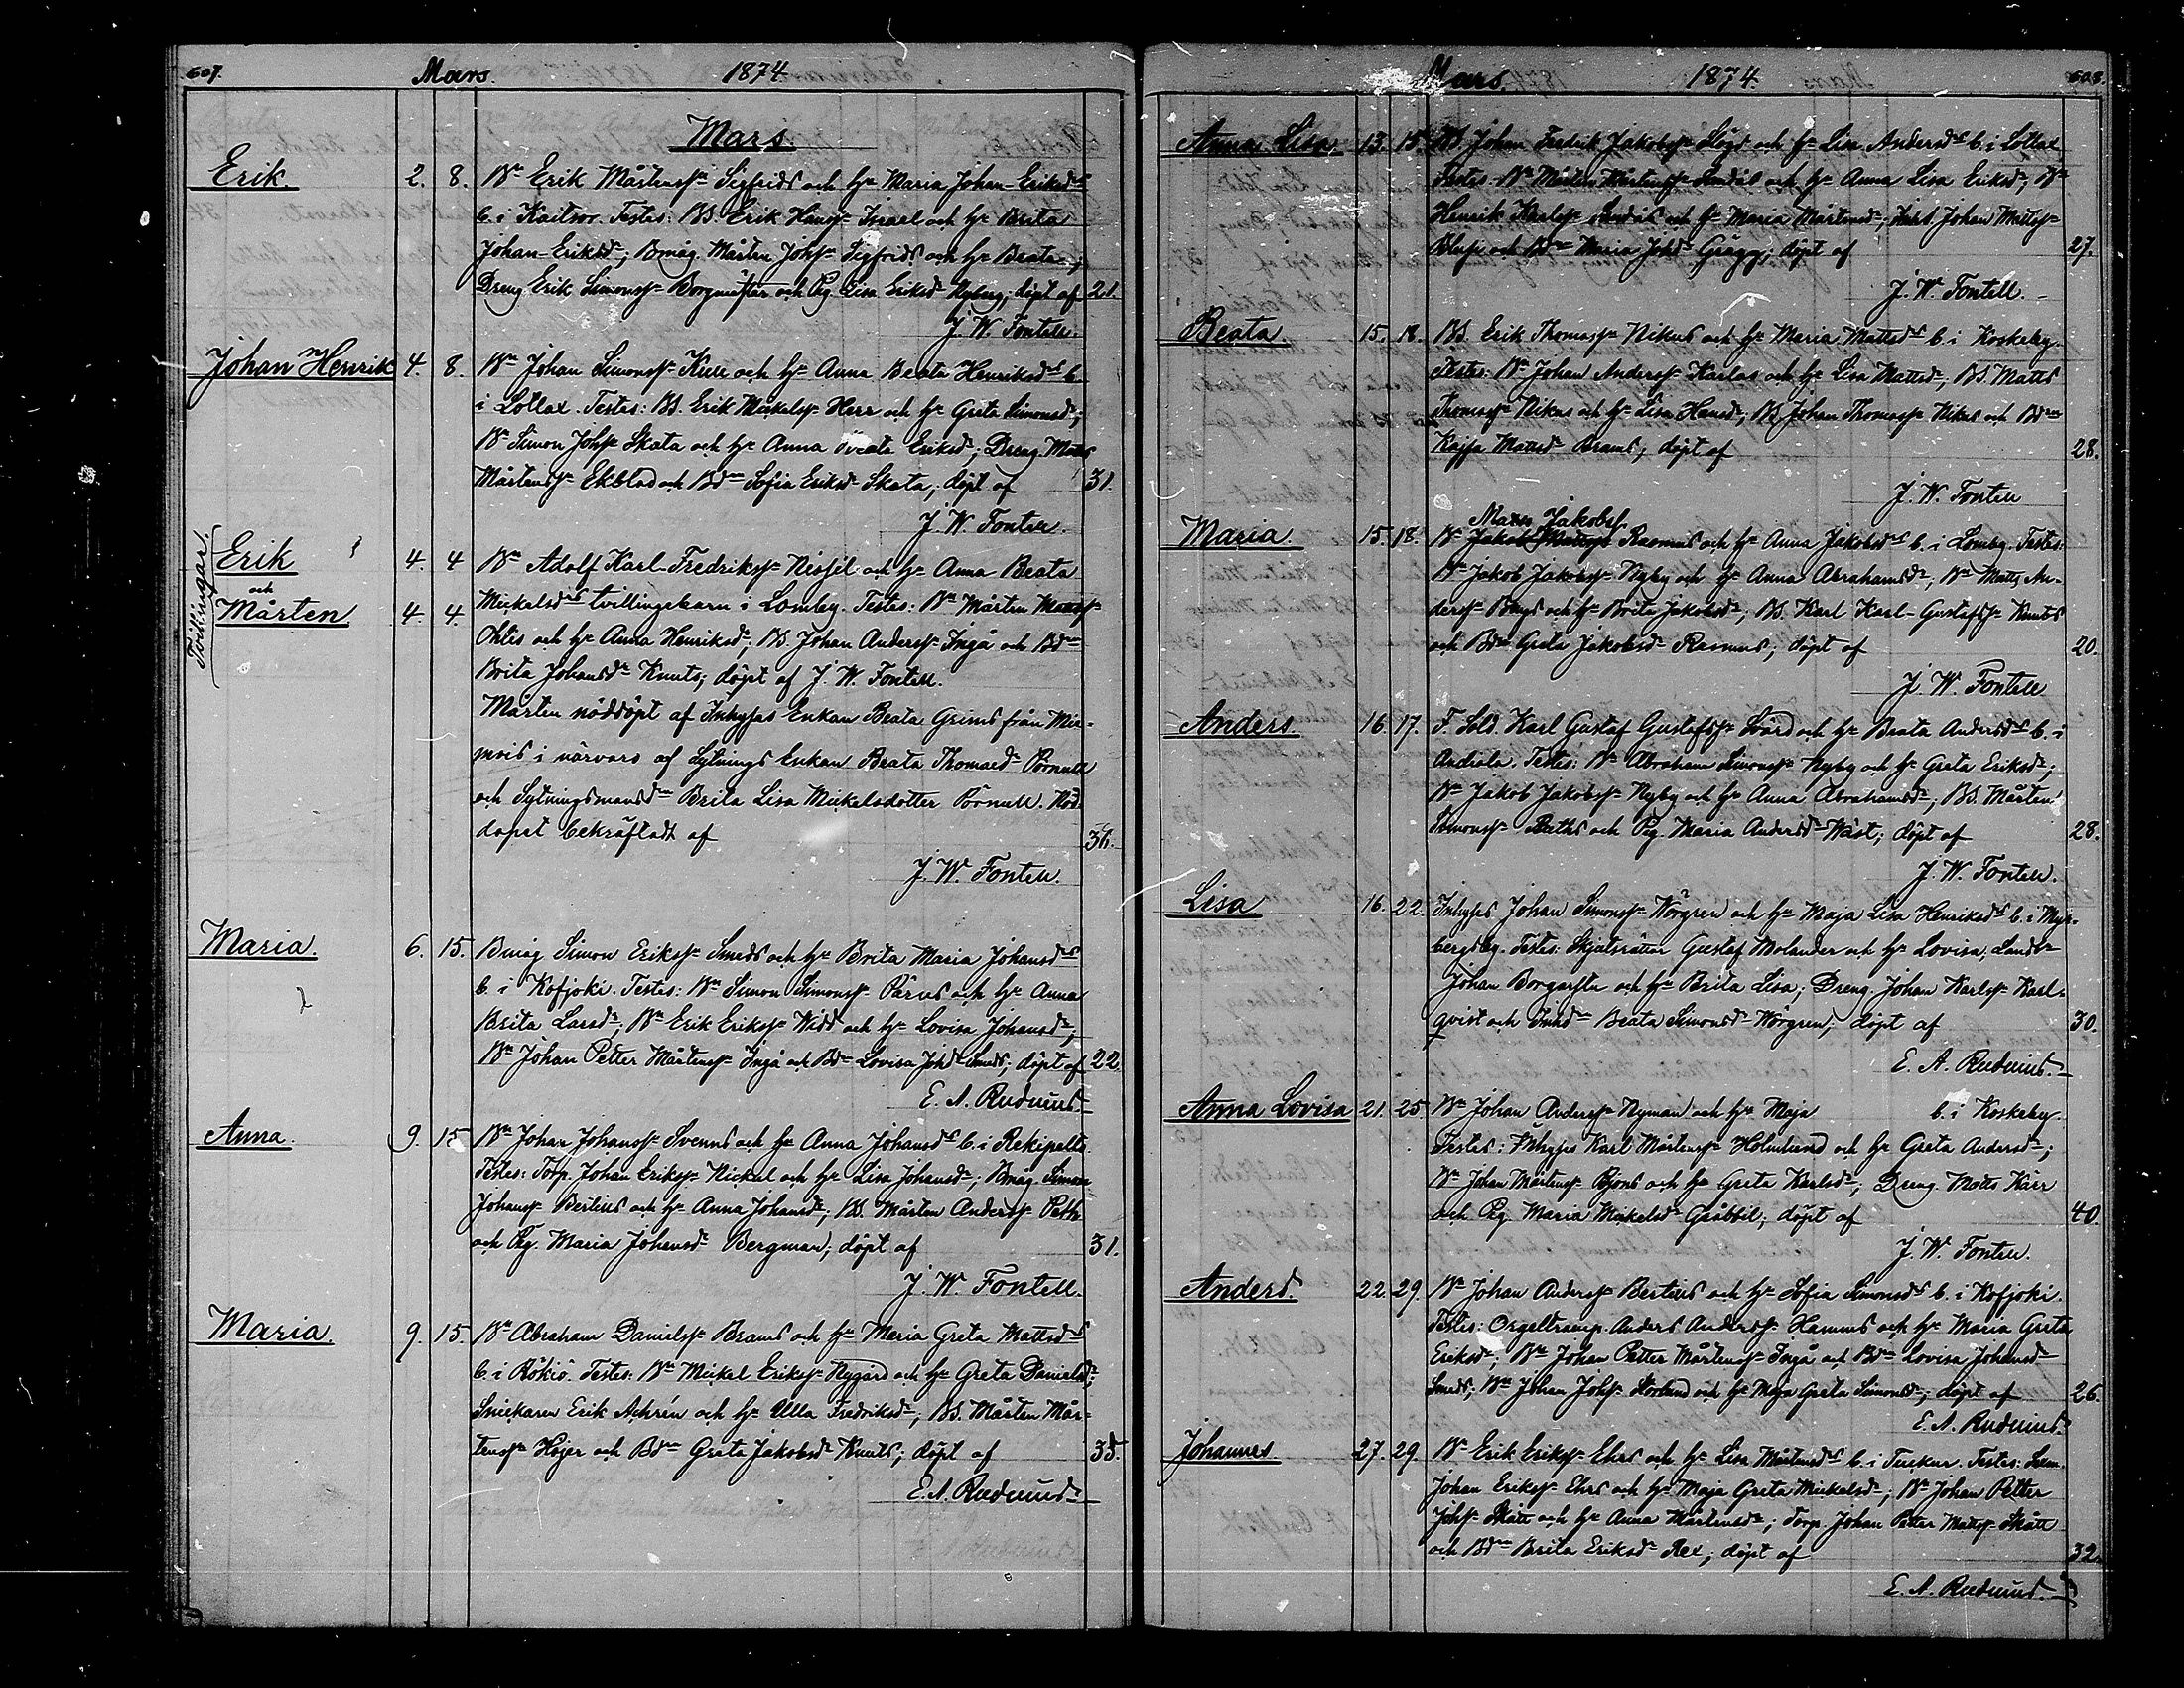 607.
Mars. 1874
Mars.
Erik. 2. 8. Bn Erik Mårtenss. Sigfrids och h. Maria Johan-Eriksdr
b. i Kaitsor. Testes: BS. Erik Hanss. Israel och h. Brita
Johan-Eriksdr; Bmåg. Mårten Johss. Sigfrids och h. Beata;
Dreng Erik Simonss. Borgmästar och Pig. Lisa Eriksdr Nyberg; döpt af 21.
J. W. Fontell.
Johan Henrik 4. 8. Bn Johan Simonss. Kull och h. Anna Beata Henriksdr b.
i Lotlax. Testes: BS. Erik Mickelss. Herr och h. Greta Simonsdr;
Bn Simon Johss. Skata och h. Anna Beata Eriksdr; Dreng Matts
Mårtenss. Ekblad och Bdn Sofia Eriksdr Skata; döpt af 31.
J. W. Fontell.
Tvillingar.
Erik 4. 4 Bn Adolf Karl-Fredrikss. Nissil och h. Anna Beata
och
Mårten 4. 4. Mickelsdr tvillingebarn i Lomby. Testes: Bn Mårten Mattss.
Ohlis och h. Anna Henriksdr; BS. Johan Anderss. Ingå och Bdn
Brita Johansdr Knuts; döpt af J. W. Fontell.
Mårten nöddöpt af Inhyses Enkan Beata Grims från
i närvaro af Sytnings Enkan Beata Thomasdr Pörnull
och Sytningsmansdn Brita Lisa Mickelsdotter Pörnull. Nöd-
dopet bekräftadt af 36.
J. W. Fontell.
Maria. 6. 15. Bmåg Simon Erikss. Smeds och h. Brita Maria Johansdr
b. i Kofjoki. Testes: Bn Simon Simonss. Pärus och h. Anna
Brita Larsdr; Bn Erik Erikss. Widd och h. Lovisa Johansdr;
Bn Johan Petter Mårtenss. Ingå och Bdn Lovisa Johdr Smeds; döpt af 22.
E. A. Rudnäus.
Anna. 9. 15 Bn Johan Johanss. Svenns och h. Anna Johansdr b. i Rekipelto.
Testes: Torp. Johan Erikss. Nickul och h. Lisa Johansdr; Bmåg. Simon
Johanss. Bertius och h. Anna Johansdr; BS. Mårten Anderss. Peth
och Pig. Maria Johansdr Bergman; döpt af 31.
J. W. Fontell.
Maria. 9. 15. Bn Abraham Danielss. Brams och h. Maria Greta Mattsdr
b. i Rökiö. Testes: Bn Mickel Erikss. Nygård och h. Greta Danielsdr;
Snickaren Erik Achrén och h. Ulla Fredriksdr; BS. Mårten Mår-
tenss. Höjer och Bdn Greta Jakobsdr Knuts; döpt af 35.
E. A. Rudnäus.
Mars. 1874. 608.
Anna Lisa. 13. 15. BS. Johan Fredrik Jakobss. Slögs och h. Lisa Andersdr b. i Lotlax.
Testes: Bn Mårten Mårtenss. Sendål och h. Anna Lisa Eriksdr; Bn
Henrik Karlss. och h. Maria Mårtensdr; Johan Mattss.
och Bdn Maria Johdr Grägg; döpt af 27.
J. W. Fontell.
Beata 15. 18. BS. Erik Thomass. Nikus och h. Maria Mattsdr b. i Koskeby.
Testes: Bn Johan Anderss. Karlas och h. Lisa Mattsdr, BS. Matts
Thomass. Nikus och h. Lisa Hansdr; BS. Johan Thomass. Nikus och Bdn
Kajsa Mattsdr Brams; döpt af 28.
J. W. Fontell
Matts Jakobss.
Maria. 15. 18. Bn Rasmus och h. Anna Jakobsdr b. i Lomby. Testes:
Bn Jakob Jakobss. Nyby och h. Anna Abrahamsdr, Bn Matts An-
derss. och h. Brita Jakobsdr; BS. Karl Karl-Gustafss. Knuts
och Bdn Greta Jakobsdr Rasmus; döpt af 20.
J. W. Fontell
Anders. 16. 17. F. Sold. Karl Gustaf Gustafss. Svärd och h. Beata Andersdr b. i
Andiala. Testes: Bn Abraham Simonss. Nyby och h. Greta Eriksdr;
Bn Jakob Jakobss. Nyby och h. Anna Abrahamsdr; BS. Mårten
Simonss. Buths och Pig. Maria Andersdr Wäst; döpt af 28.
J. W. Fontell.
Lisa 16. 22. Inhyses Johan Simonss. Norgren och h. Maja Lisa Henriksdr b. i Myr-
bergsby. Testes: Skjutsrättar Gustaf Molander och h. Lovisa;
Johan Borgarstu och h. Brita Lisa; Dreng. Johan Karlss. Karl-
qvist och Beata Simonsdr Norgren; döpt af 30.
E. A. Rudnäus.
Anna Lovisa 21. 25 Bn Johan Anderss. Nyman och h. Maja b. i Koskeby.
Testes: Inhyses Karl Mårtenss. Holmlund och h. Greta Andersdr;
Bn Johan Mårtenss. Bjons och h. Greta Karlsdr; Dreng. Matts Kärr
och Pig. Maria Mickelsdr Gråbbil; döpt af 40.
J. W. Fontell.
Anders. 22. 29. Bn Johan Anderss. Bertius och h. Sofia Simonsdr b. i Kofjoki.
Testes: Orgeltramp. Anders Anderss. Hamms och h. Maria Greta
Eriksdr; Bn Johan Petter Mårtenss. Ingå och Bdn Lovisa Johansdr
Smeds; Bn Johan Johss. Storlund och h. Maja Greta Simonsdr; döpt af 26.
E. A. Rudnäus.
Johannes 27. 29. Bn Erik Erikss. Ehrs och h. Lisa Mårtensdr b. i Tuckur. Testes:
Johan Erikss. Ehrs och h. Maja Greta Mickelsdr; Bn Johan Petter
Johss. Skått och h. Anna Mårtensdr; Torp. Johan Petter Mattss. Skått
och Bdn Brita Eriksdr Rex; döpt af 32.
E. A. Rudnäus.